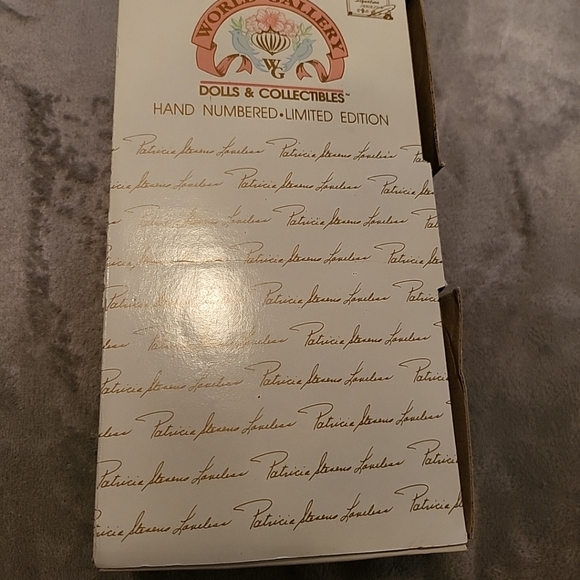 WORLD GALLERY
WG
DOLLS & COLLECTIBLES™
HAND NUMBERED•LIMITED EDITION
Patricia Stevens Loveless Patricia Stevens Loveless
Patricia Stevens Loveless Patricia Ste
Patricia Stevens Loveless Patricia Stevens Loveless
Patricia Stevens Loveless Patricia Ste
Patricia Stevens Loveless Patricia Stevens Loveless
Patricia Stevens Loveless Patricia Stevens Loveless
Patricia Stevens Loveless Patricia Stevens Loveless Patrici
Patricia Stevens Loveless Patricia Stevens Loveless
Patricia Stevens Loveless Patricia Stevens Loveless Patrici
Patricia Stevens Loveless Patricia Stevens Loveless Patricia St